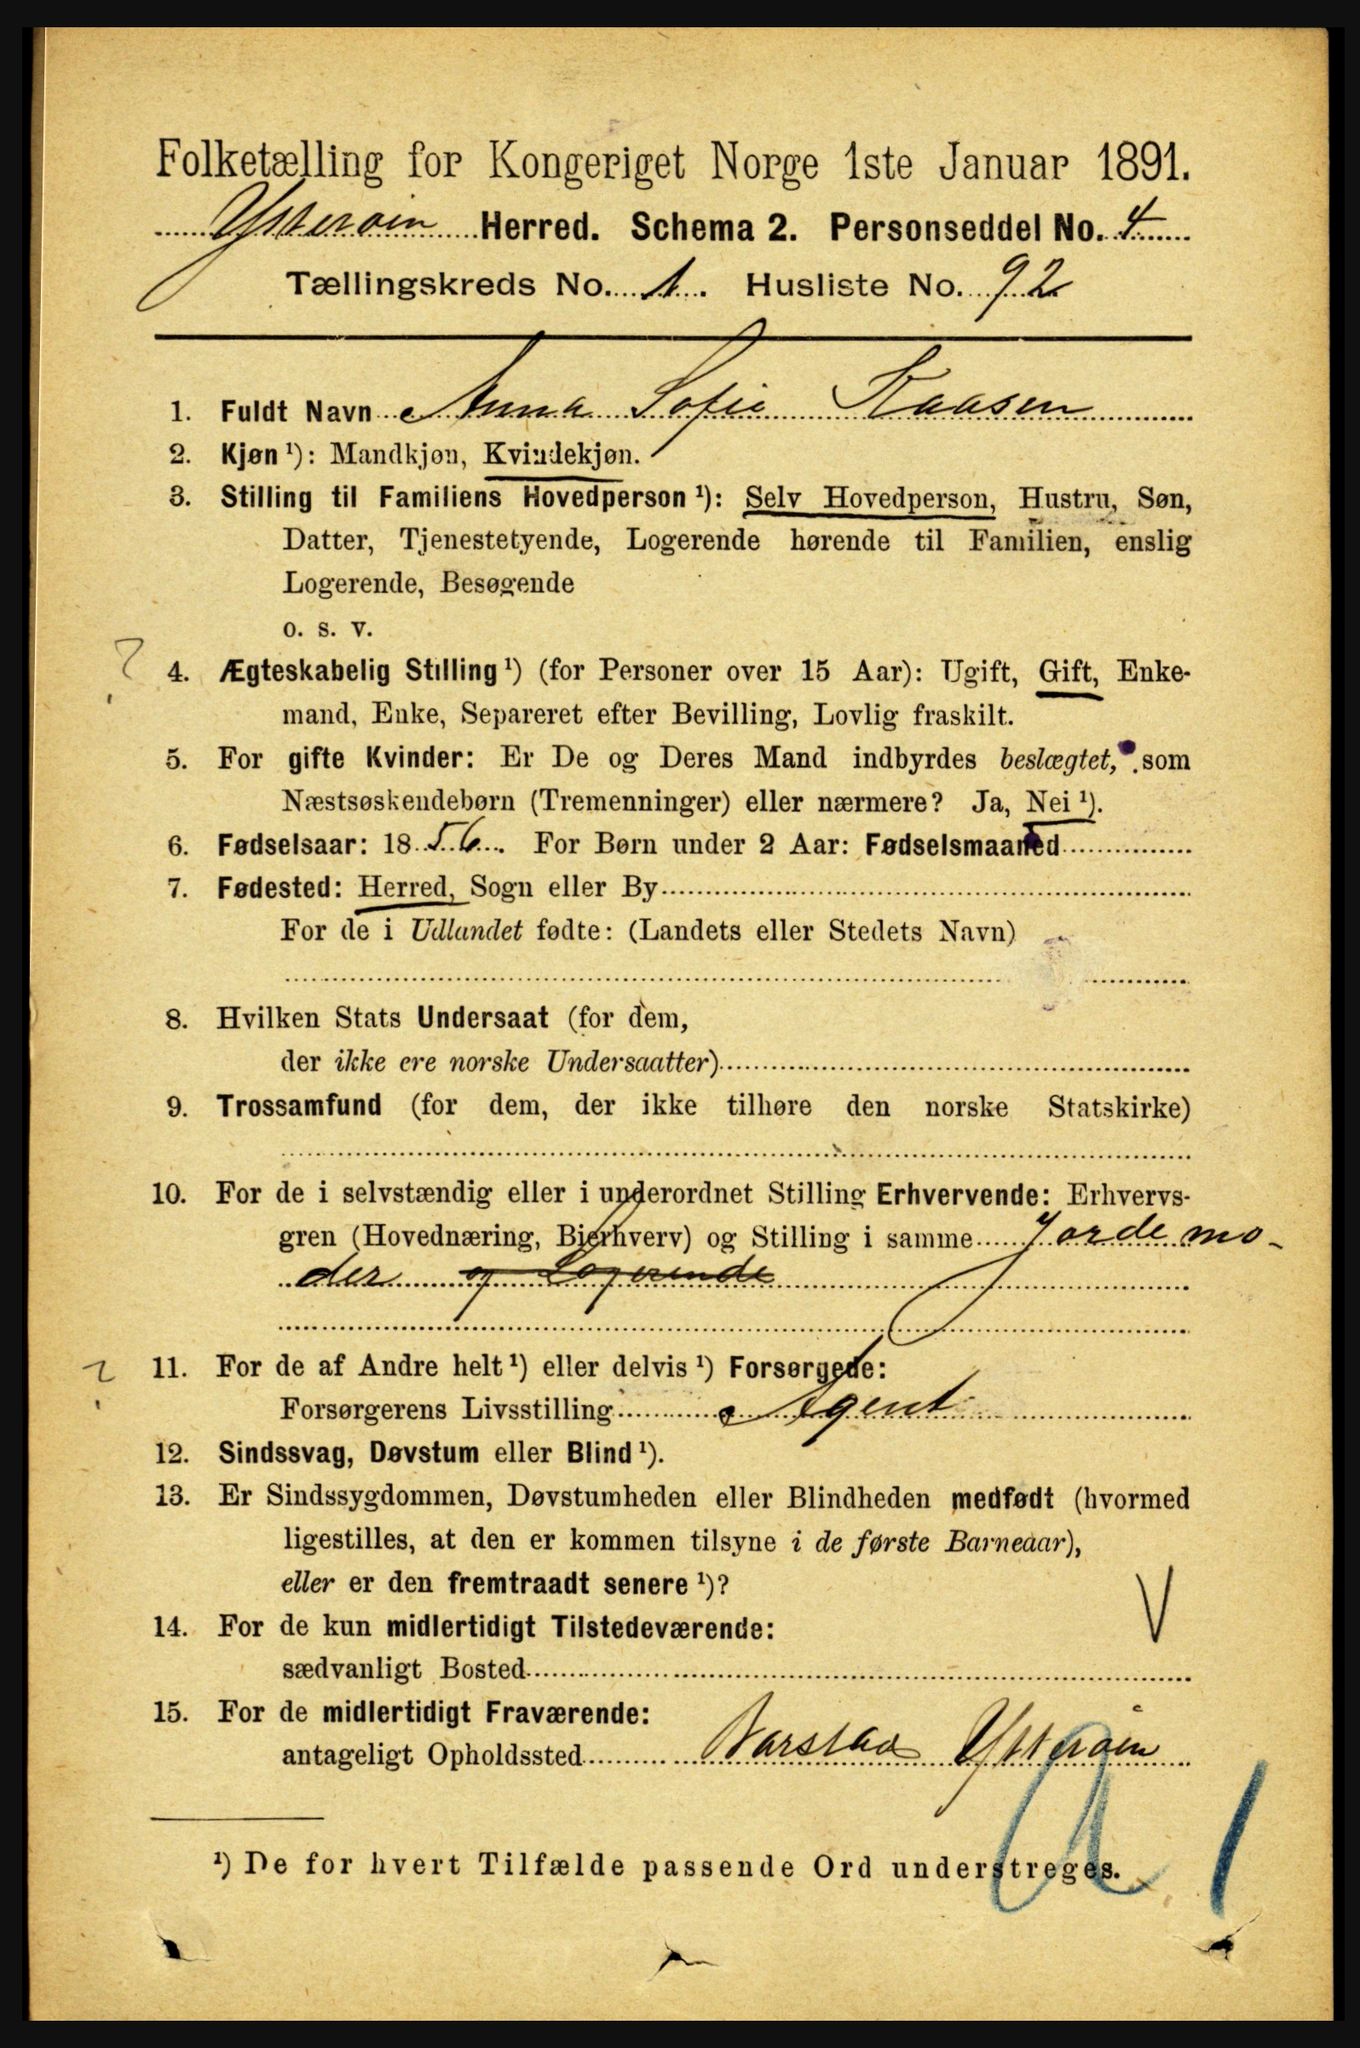 Folketælling for Kongeriget Norge 1ste Januar 1891.
Ytterøen Herred. Schema 2. Personseddel No. 4
Tællingskreds No. 1. Husliste No. 92
1. Fuldt Navn Anna Sofie Kaasen
2. Kjøn ¹): Mandkjøn, Kvindekjøn.
3. Stilling til Familiens Hovedperson ¹): Selv Hovedperson, Hustru, Søn,
Datter, Tjenestetyende, Logerende hørende til Familien, enslig
Logerende, Besøgende
o. s. v.
?
4. Ægteskabelig Stilling ¹) (for Personer over 15 Aar): Ugift, Gift, Enke-
mand, Enke, Separeret efter Bevilling, Lovlig fraskilt.
5. For gifte Kvinder: Er De og Deres Mand indbyrdes beslægtet, som
Næstsøskendebørn (Tremenninger) eller nærmere? Ja, Nei ¹).
6. Fødselsaar: 1856. For Børn under 2 Aar: Fødselsmaaned
7. Fødested: Herred, Sogn eller By
For de i Udlandet fødte: (Landets eller Stedets Navn)
8. Hvilken Stats Undersaat (for dem,
der ikke ere norske Undersaatter)
9. Trossamfund (for dem, der ikke tilhøre den norske Statskirke)
10. For de i selvstændig eller i underordnet Stilling Erhvervende: Erhvervs-
gren (Hovednæring, Bierhverv) og Stilling i samme Jordemo-
der og Logerende
?
11. For de af Andre helt ¹) eller delvis ¹) Forsørgede:
Forsørgerens Livsstilling Agent
12. Sindssvag, Døvstum eller Blind ¹).
13. Er Sindssygdommen, Døvstumheden eller Blindheden medfødt (hvormed
ligestilles, at den er kommen tilsyne i de første Barneaar),
eller er den fremtraadt senere ¹)?
V
14. For de kun midlertidigt Tilstedeværende:
sædvanligt Bosted
15. For de midlertidigt Fraværende:
antageligt Opholdssted Ytterøen
¹) De for hvert Tilfælde passende Ord understreges.
1